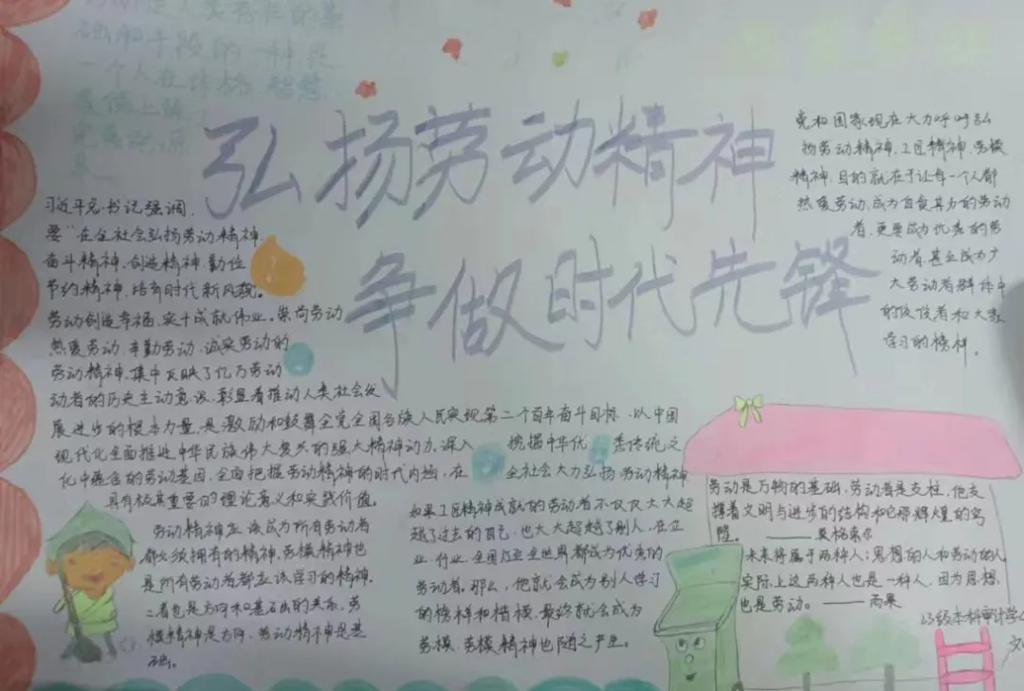 弘扬劳动精神
争做时代先锋
基
础和手段的一种是
一个人在体格、智慧
习近平总书记强调,
要“在全社会弘扬劳动精神、
奋斗精神、创造精神、勤俭
节约精神,培育时代新风貌。
劳动创造幸福,实干成就伟业。崇尚劳动
热爱劳动、辛勤劳动、诚实劳动的
劳动精神,集中反映了亿万劳动
动者的历史主动意识,彰显着推动人类社会发
展进步的根本力量,是激励和鼓舞全党全国各族人民实现第二个百年奋斗目标、以中国
现代化全面推进中华民族伟大复兴的强大精神动力。深入 挖掘中华优 秀传统文
化中蕴含的劳动基因,全面把握劳动精神的时代内涵,在 全社会大力弘扬劳动精神
具有极其重要的理论意义和实践价值。
劳动精神应该成为所有劳动者
都必须拥有的精神,劳模精神也
是所有劳动者都应该学习的精神,
二者也是方向和基石的关系,劳
模精神是方向,劳动精神是基
础。
如果工匠精神成就的劳动者不仅仅大大超
越了过去的自己,也大大超越了别人,在企
业、行业、全国乃至全世界都成为优秀的
劳动者,那么,他就会成为别人学习
的榜样和楷模,最终就会成为
劳模,劳模精神也随之产生。
党和国家现在大力呼吁弘
扬劳动精神、工匠精神、劳模
精神,目的就在于让每一个人都
热爱劳动,成为自食其力的劳动
者,更要成为优秀的劳
动者,甚至成为广
大劳动者群体中
的佼佼者和大家
学习的榜样。
劳动是万物的基础,劳动者是支柱,他支
撑着文明与进步的结构和它那辉煌的穹
隆。——英格索尔
未来将属于两种人:思想的人和劳动的人,
实际上这两种人也是一种人,因为思想
也是劳动。——雨果
级本科审计学